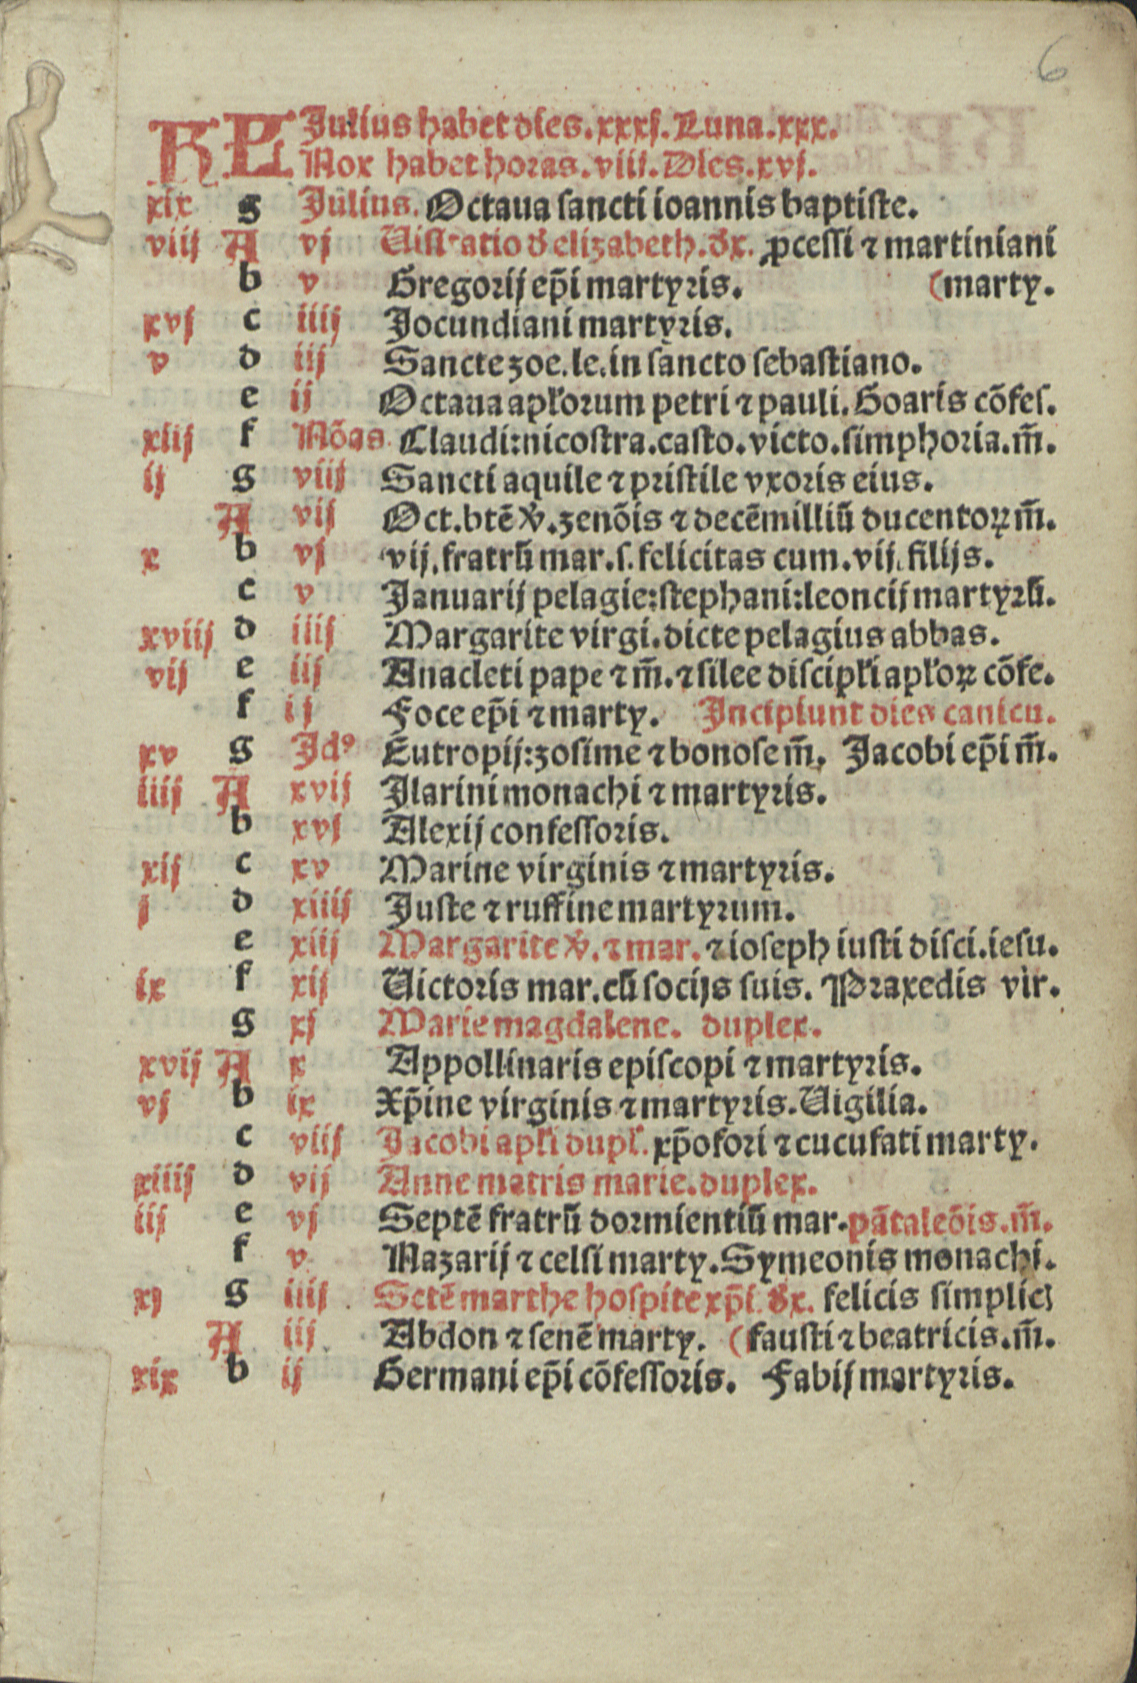 6
KL Julius habet dies.xxxj. Luna.xxx.
Nox habet horas.viij. Dies.xvj.
xix g Julius. Octaua sancti ioannis baptiste.
viij A vj Uisitatio đ elizabeth.đx. ꝓcessi ⁊ martiniani
b v Gregorij ep̃i martyris. (marty.
xvj c iiij Jocundiani martyris.
v d iij Sancte zoe.le.in sancto sebastiano.
e ij Octaua apłoꝛum petri ⁊ pauli. Goaris cõfes.
xiij f Nõas Claudi:nicostra.casto.victo.simphoꝛia.m̃.
ij g viij Sancti aquile ⁊ pꝛistile vxoꝛis eius.
A vij Oct.btẽ v̊.zenõis ⁊ decẽmilliũ ducentoꝝ m̃.
x b vj vij.fratrũ mar.s.felicitas cum.vij.filijs.
c v Januarij pelagie:stephani:leoncij martyꝛũ.
xviij d iiij Margarite virgi.dicte pelagius abbas.
vij e iij Anacleti pape ⁊ m̃.⁊ silee discipłi apłoꝝ cõfe.
f ij Foce ep̃i ⁊ marty. Incipiunt dies canicu.
xv g Idꝰ Eutropij:zosime ⁊ bonose m̃. Jacobi ep̃i m̃.
iiij A xvij Ilarini monachi ⁊ martyris.
b xvj Alexij confessoꝛis.
xij c xv Marine virginis ⁊ martyꝛis.
j d xiiij Juste ⁊ ruffine martyꝛum.
e xiij Margarite v̊.⁊ mar. ⁊ ioseph iusti disci.iesu.
ix f xij Uictoꝛis mar.cũ socijs suis. Pꝛaxedis vir.
g xj Marie magdalene. duplex.
xvij A x Appollinaris episcopi ⁊ martyris.
vj b ix Xp̃ine virginis ⁊ martyꝛis.Uigilia.
c viij Jacobi apłi dupł. xp̃ofoꝛi ⁊ cucufati marty.
xiiij d vij Anne matris marie.duplex.
iij e vj Septẽ fratrũ doꝛmientiũ mar.pãtaleõis.m̃.
f v Nazarij ⁊ celsi marty.Symeonis monachi.
xj g iiij Sctẽ marthe hospite xp̃i.đx. felicis simplici
A iij Abdon ⁊ senẽ marty. (fausti ⁊ beatricis.m̃.
xix b ij Germani ep̃i cõfessoꝛis. Fabij martyꝛis.